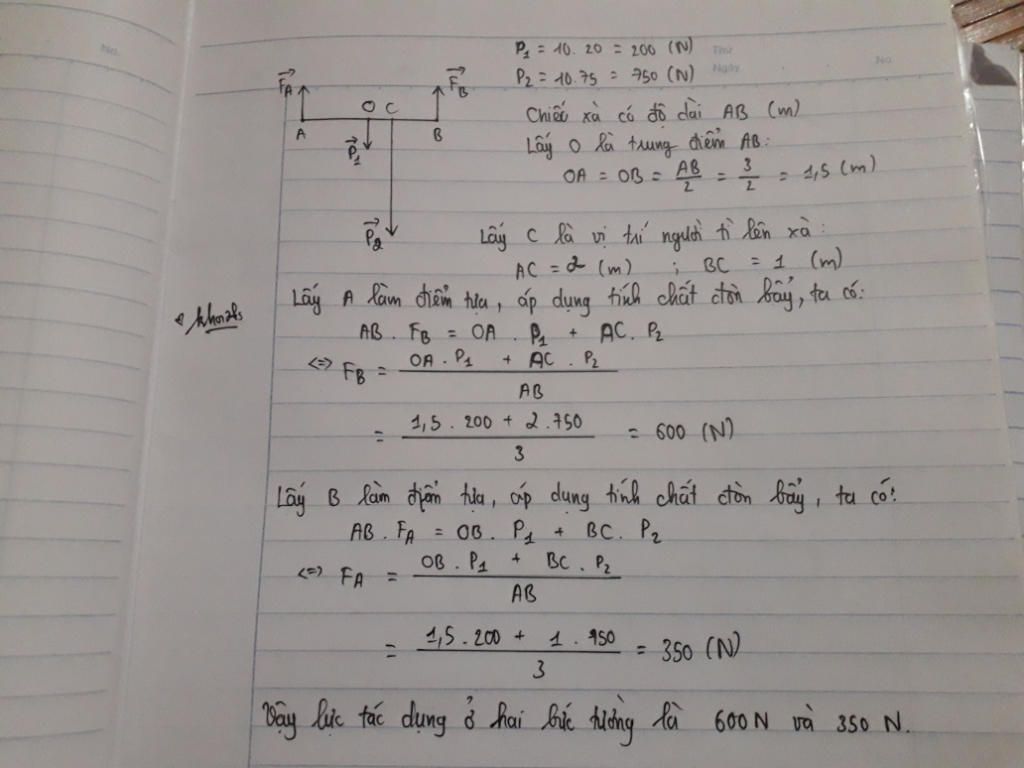 No.
Thứ
Ngày
No
P₁ = 10. 20 = 200 (N)
P₂ = 10.75 = 750 (N)
F_A F_B
O C
A B
P₁
P₂
Chiếc xà có độ dài AB (m)
Lấy O là trung điểm AB:
OA = OB = AB/2 = 3/2 = 1,5 (m)
Lấy C là vị trí người tì lên xà:
AC = 2 (m) ; BC = 1 (m)
Lấy A làm điểm tựa, áp dụng tính chất đòn bẩy, ta có:
AB. F_B = OA . P₁ + AC. P₂
<=> F_B = (OA . P₁ + AC . P₂)/AB
= (1,5 . 200 + 2.750)/3 = 600 (N)
Lấy B làm điểm tựa, áp dụng tính chất đòn bẩy, ta có:
AB. F_A = OB. P₁ + BC. P₂
<=> F_A = (OB . P₁ + BC. P₂)/AB
= (1,5.200 + 1 . 750)/3 = 350 (N)
Vậy lực tác dụng ở hai bức tường là 600N và 350 N.